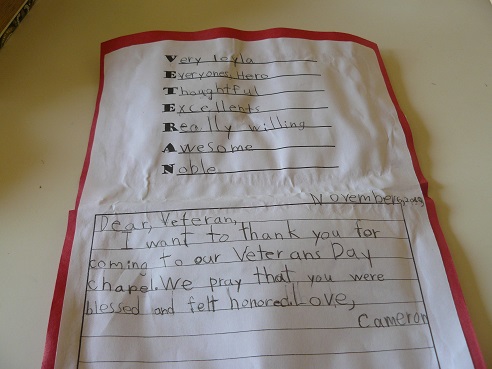 Very loyla
Everyones, Hero
Thoughtful
Excellents
Really willing
Awesome
Noble
November
Dear, Veteran,
I want to thank you for
coming to our Veterans Day
chapel. We pray that you were
blessed and felt honored. Love,
Cameron